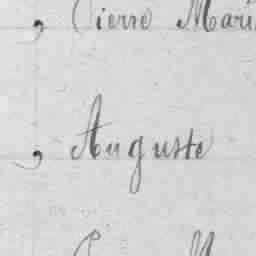 , Pierre Mari
, Auguste